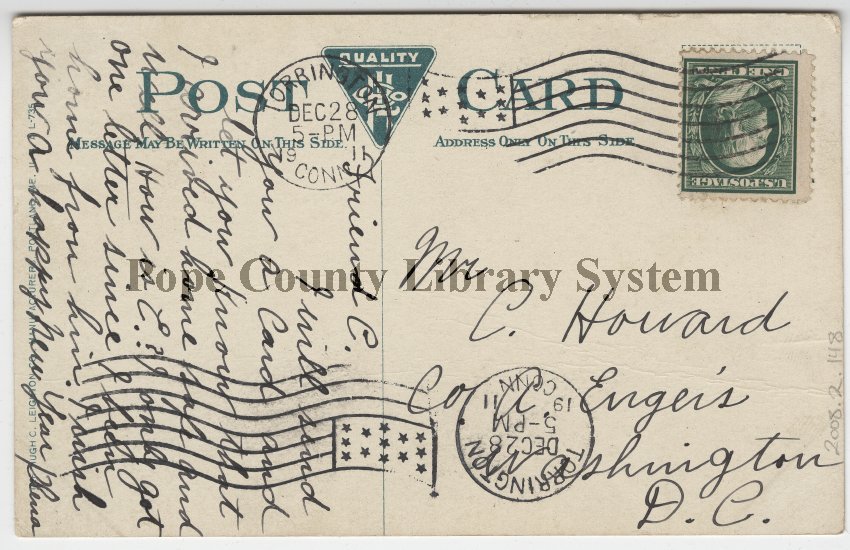 POST CARD
QUALITY
MESSAGE MAY BE WRITTEN ON THIS SIDE.
ADDRESS ONLY ON THIS SIDE
TORRINGTON
DEC 28
5-PM
19 11
CONN.
U.S. POSTAGE
Friend C.
I will send
you a Card and
let you know that
I arrived home safe and
well. How is E.? Only got
one letter since I been
home from him. I wish
you a happy New Year
Mr
C. Howard
Co A Engers
Washington
D. C.
TORRINGTON
DEC 28
5-PM
19 11
CONN
2008.2.148
Pope County Library System
HUGH C. LEIGHTON CO., MANUFACTURERS, PORTLAND, ME.